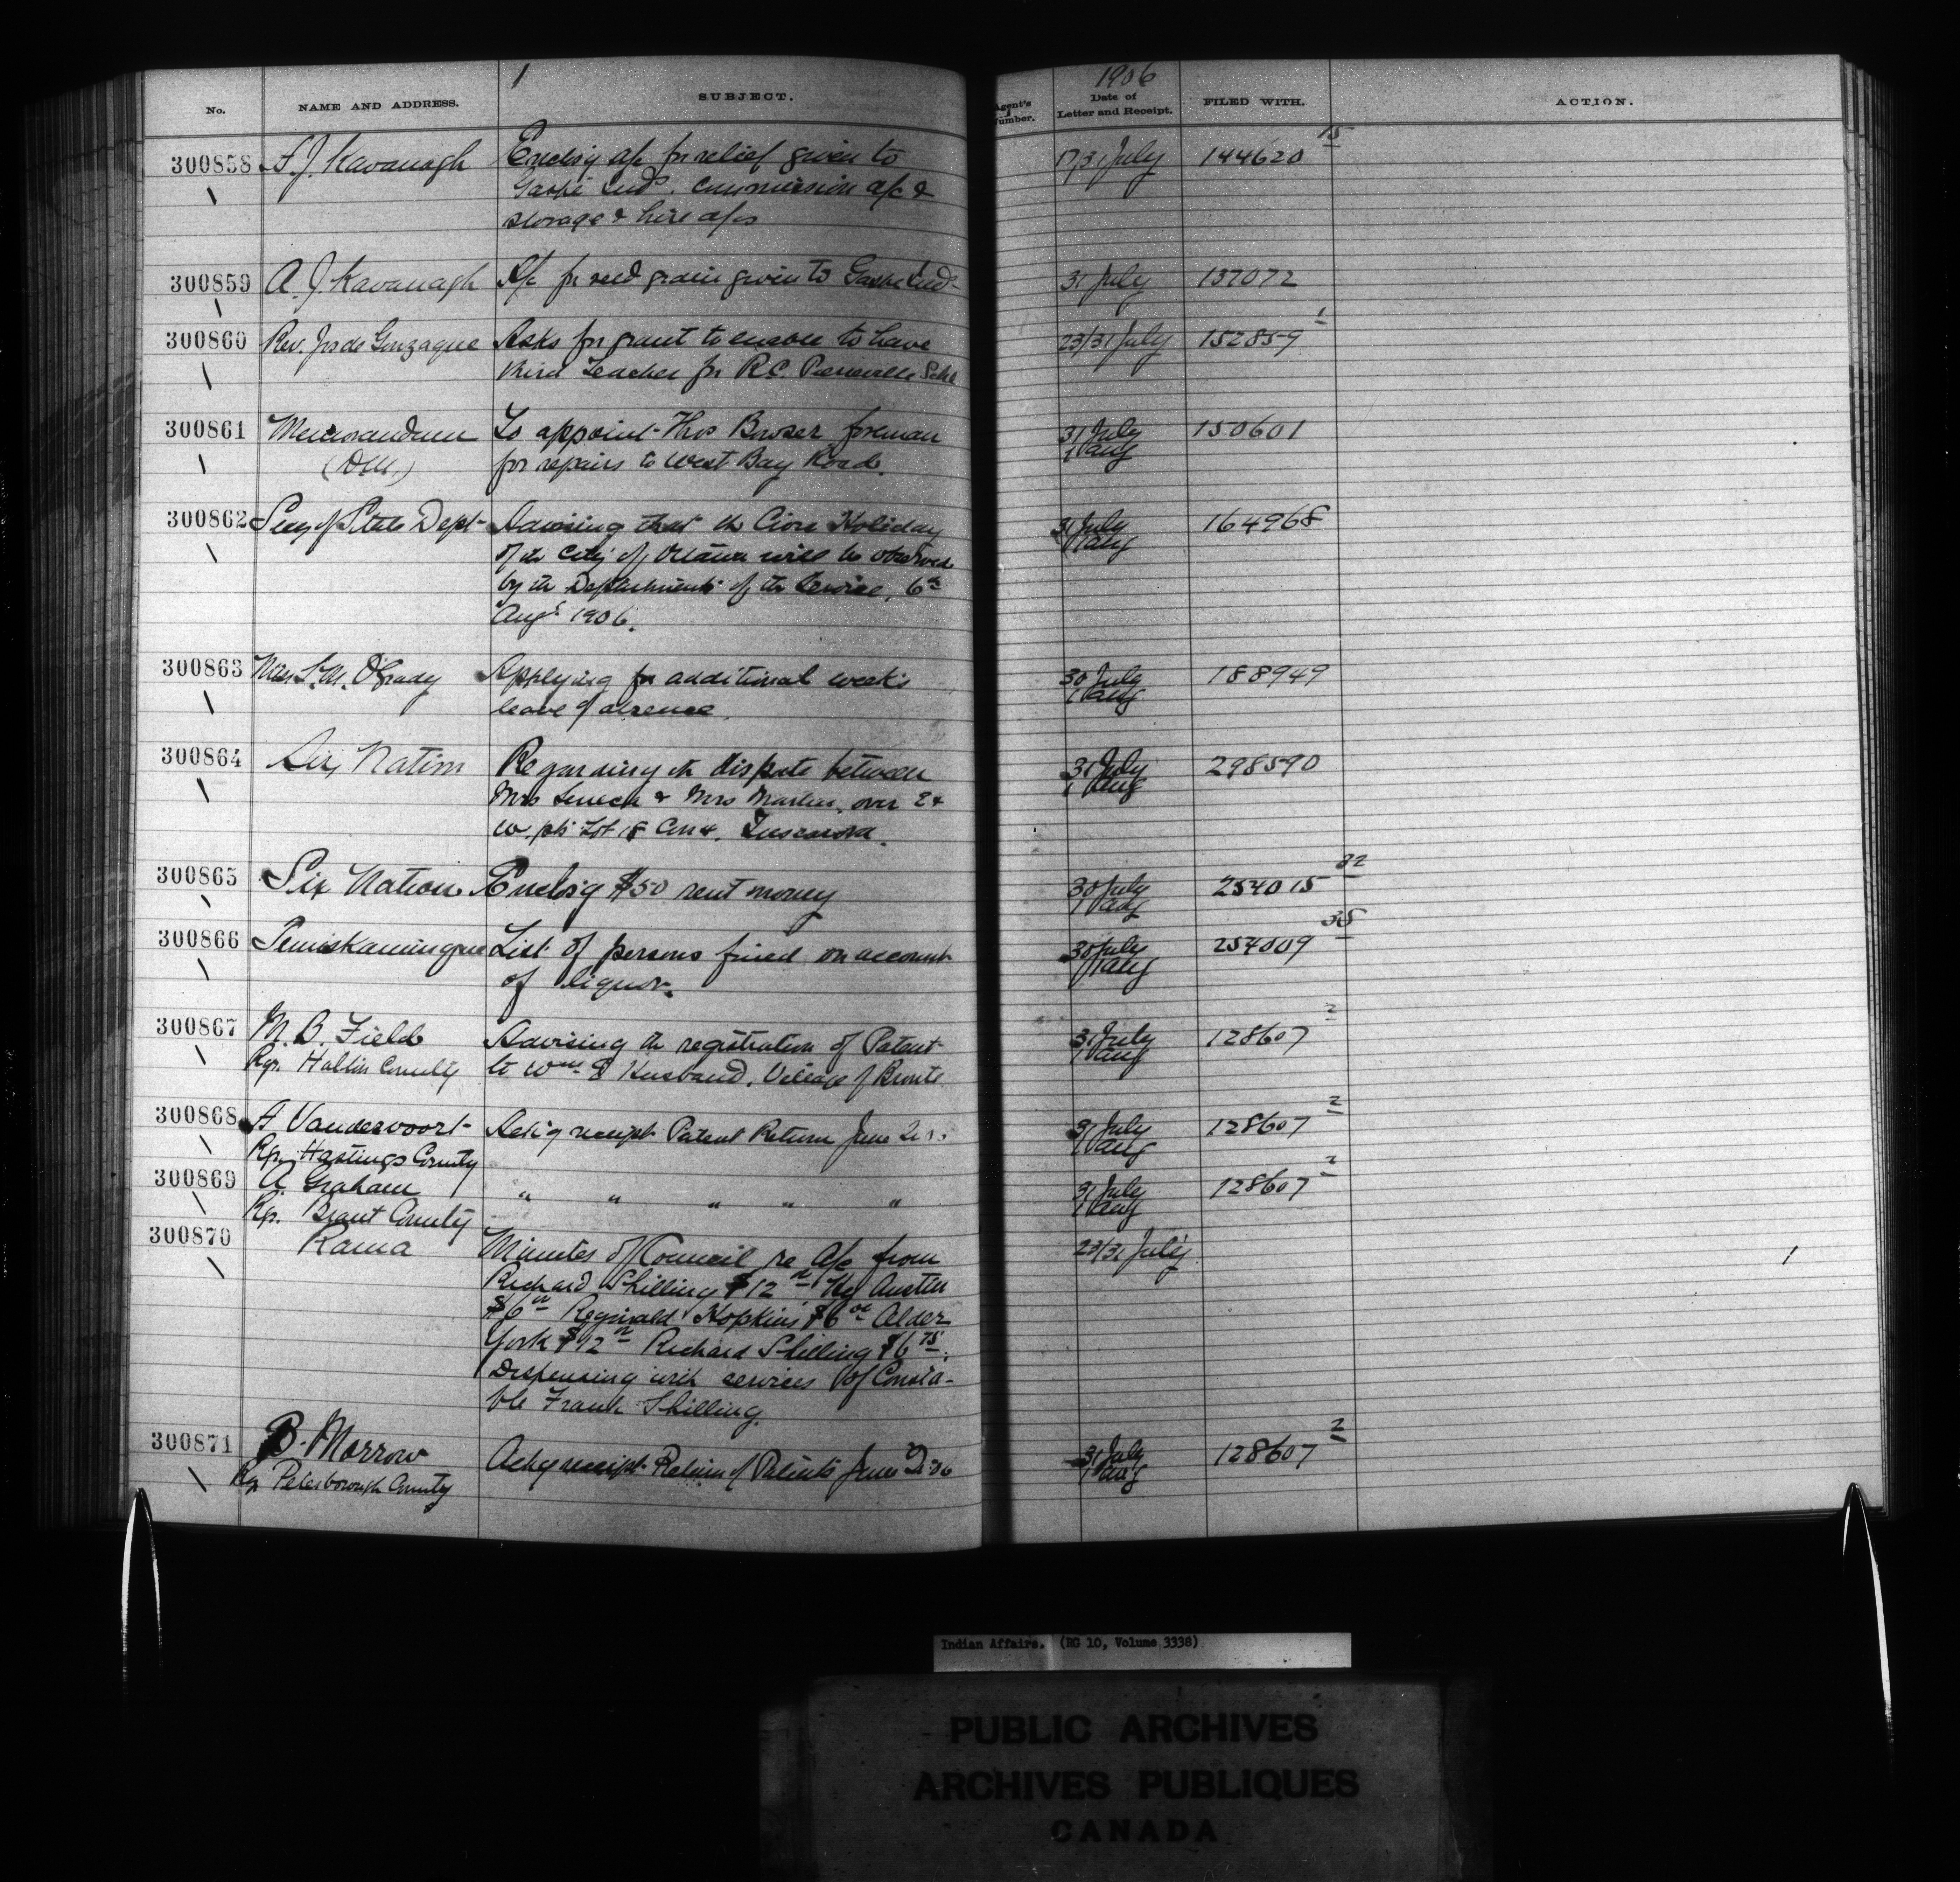 1
1906
No.
NAME AND ADDRESS.
SUBJECT.
Agent's Number.
Date of Letter and Receipt.
FILED WITH.
ACTION.
300858 A.J. Kavanagh Enclos'g a/c for relief given to 17/31 July 144620 15
Gaspé Inds. commission a/c &
storage & hire a/cs
300859 A. J. Kavanagh A/c for seed grain given to Gaspe Inds 31 July 137072
300860 Rev. Jos de Gonzague Asks for grant to enable to have 23/31 July 152859 1
third Teacher for R.C. Pierreville Schl
300861 Memorandum To appoint Thos Bowser foreman 31 July 150601
(D.M.) for repairs to West Bay Road. 1 Aug
300862 Secy of State Dept Advising that the Civic Holiday 31 July 164968
of the City of Ottawa will be observed 1 Aug
by the Departments of the Service, 6th
Augt 1906.
300863 Miss L.M. O'Grady Applying for additional week's 30 July 188949
leave of absence. 1 Aug
300864 Six Nation Regarding the dispute between 31 July 298590
Mrs Seneca & Mrs Martin over E & 1 Aug
W. pts Lot 18 Con 4. Tuscarora.
300865 Six Nation Enclos'g $50 rent money 30 July 254015 32
1 Aug
300866 Temiskamingue List of persons fined on account 30 July 254009 35
of liquor. 1 Aug
300867 M. B. Field Advising the registration of Patent 31 July 128607 2
Rgr. Halton County to Wm Husband, Village of Bronte 1 Aug
300868 A Vandervoort Ack'g receipt Patent Return June 31 July 128607 2
Rgr. Hastings County 1 Aug
300869 A. Graham " " " " " 31 July 128607 2
Rgr. Brant County 1 Aug
300870 Rama Minutes of Council re a/c from 23/31 July 1
Richard Shilling $12 Hy Austin
$6 Reginald Hopkins $6 00 Alder
York $12 Richard Shilling $6 75.
Dispensing with services of Consta-
ble Frank Shilling.
300871 B. Morrow Ackg receipt Return of Patents June 31 July 128607 2
Rgr Peterborough County 1 Aug
Indian Affairs. (RG 10, Volume 3338)
PUBLIC ARCHIVES
ARCHIVES PUBLIQUES
CANADA